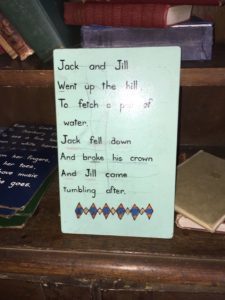 Jack and Jill
Went up the hill,
To fetch a pail of
water.
Jack fell down
And broke his crown
And Jill came
tumbling after.
her fingers,
her toes.
have music
goes.